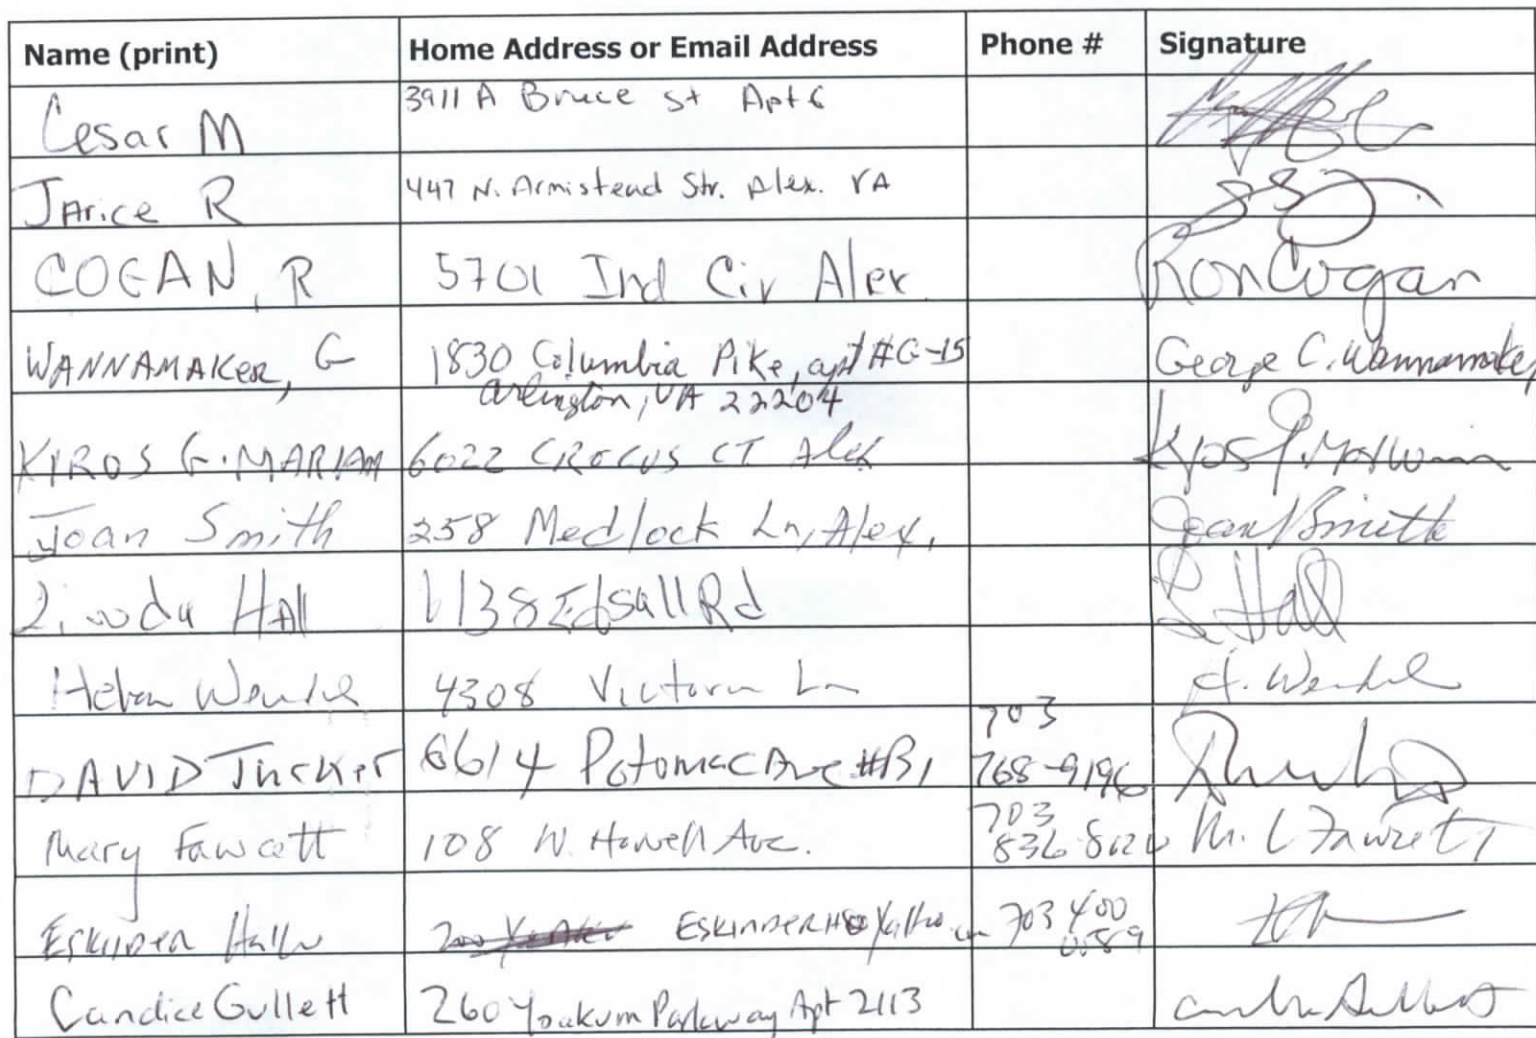 Name (print) Home Address or Email Address Phone # Signature
Cesar M 3911 A Bruce St Apt 6
Jarice R 447 N. Armistead Str. Alex. VA
COGAN, R 5701 Ind Cir Alex Ron Cogan
WANNAMAKER, G 1830 Columbia Pike, apt #G-15 George C. Wannamaker
Arlington, VA 22204
KIROS G. MARIAM 6022 CROCUS CT Alex
Joan Smith 258 Medlock Ln, Alex. Joan Smith
Linda Hall 6138 Edsall Rd L Hall
Helen 4308 Victoria Ln H.
703
DAVID Tucker 6614 Potomac Ave #B1 768-9196
703
Mary Fawcett 108 W. Howell Ave. 836-8126 M. C Fawcett
ESKINDER 703 400
0589
Candice Gullett 260 Yoakum Parkway Apt 2113